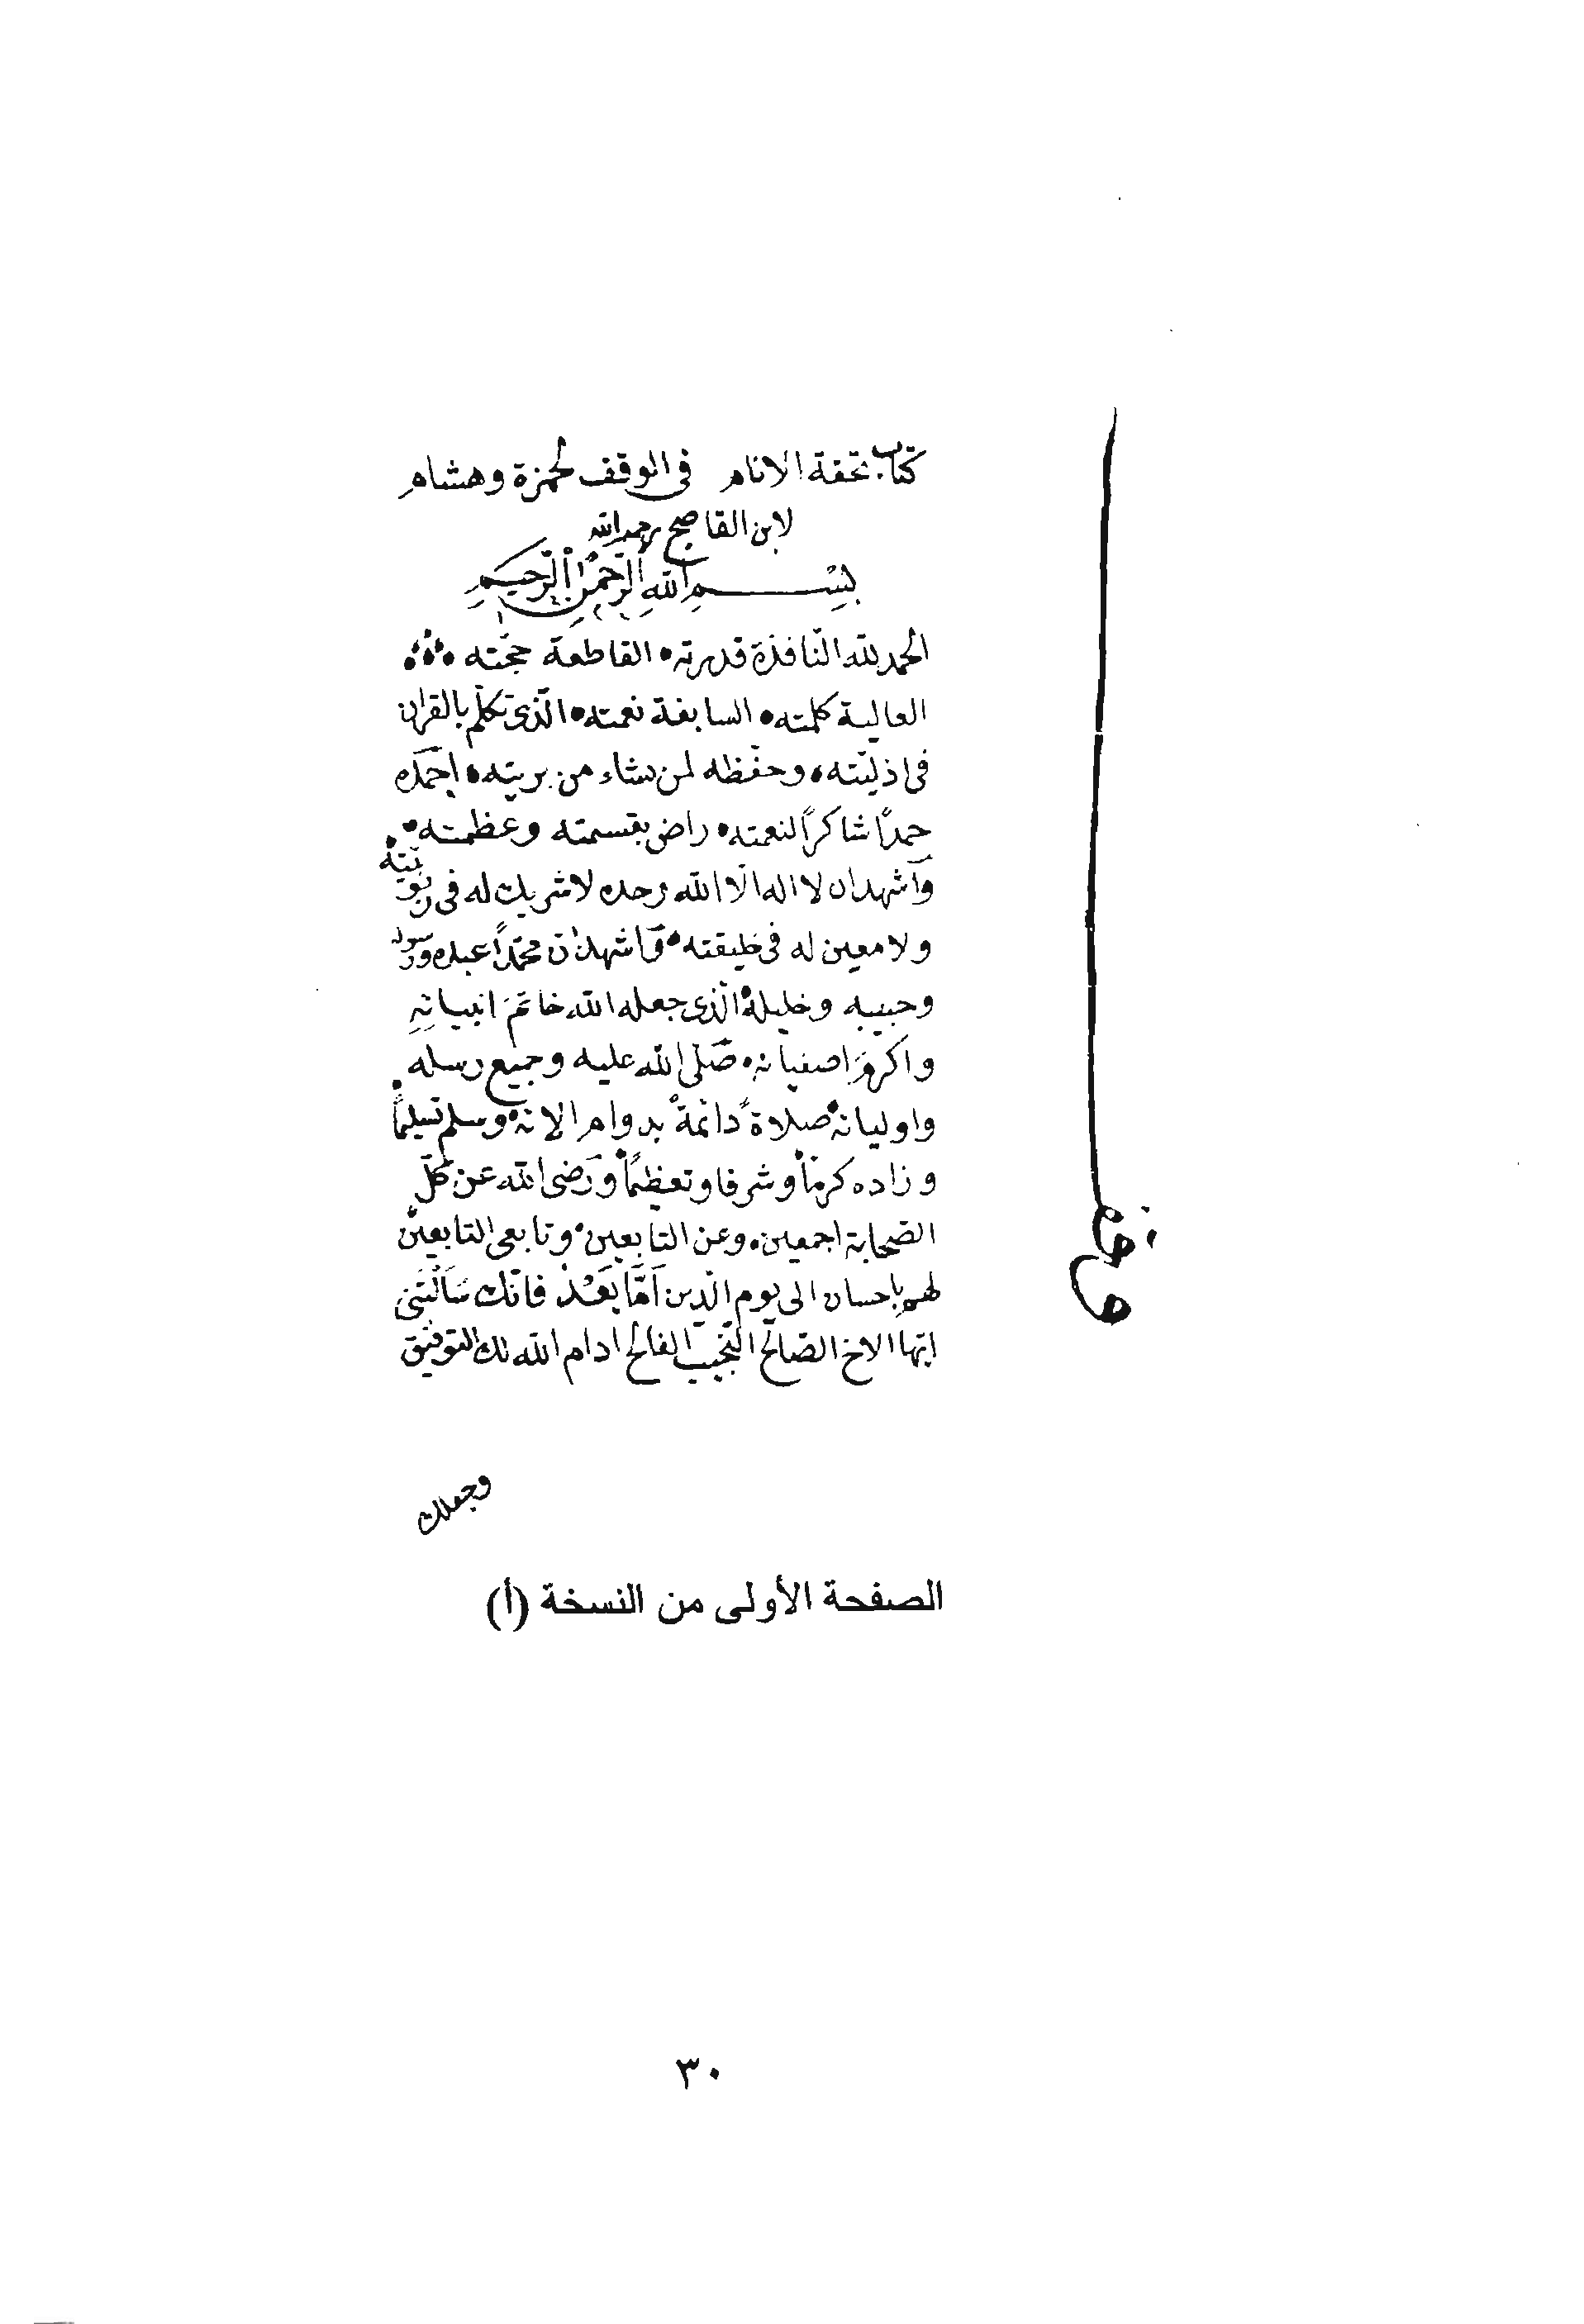 كتاب تحفة الانام في الوقف لحمزة وهشام
لابن القاصح رحمه الله
بسم الله الرحمن الرحيم
الحمد لله النّافذة قدرته • القاطعة حجّته
العالية كلمته • السابغة نعمته • الّذي تكلّم بالقران
في ازليّته • وحفّظه لمن يشاء من بريته • احمَده
حمدًا شاكرًا لنعمته • راض بقسمته وعظمته •
وَاشهد ان لا اله الّا الله وحده لا شريك له في ربوبيّته •
ولا معين له في خليقته • وَاشهد ان محمّدًا عبده وَرسوله
وحبيبه وخليله • الّذي جعله الله خاتمَ انبيائهِ
واكرمَ اصفيائه • صَلّى الله عليه وجميع رسله •
واوليائه • صلاةً دائمةً بدوام الائه • وسلم تسليمًا
وزاده كرمًا وشرفا وتعظيمًا • وَرَضى الله عن كلّ
الصّحابة اجمعين • وعن التابعين • وتابعى التابعين
لهم باحسان الى يوم الّدين اَمَّا بَعْدُ فانّك سَاَلْتَني
ايّها الاخ الصّالح النّجيب الفالح ادام الله لك التوفيق
وجعلك
وقف
الصفحة الأولى من النسخة (أ)
٣٠